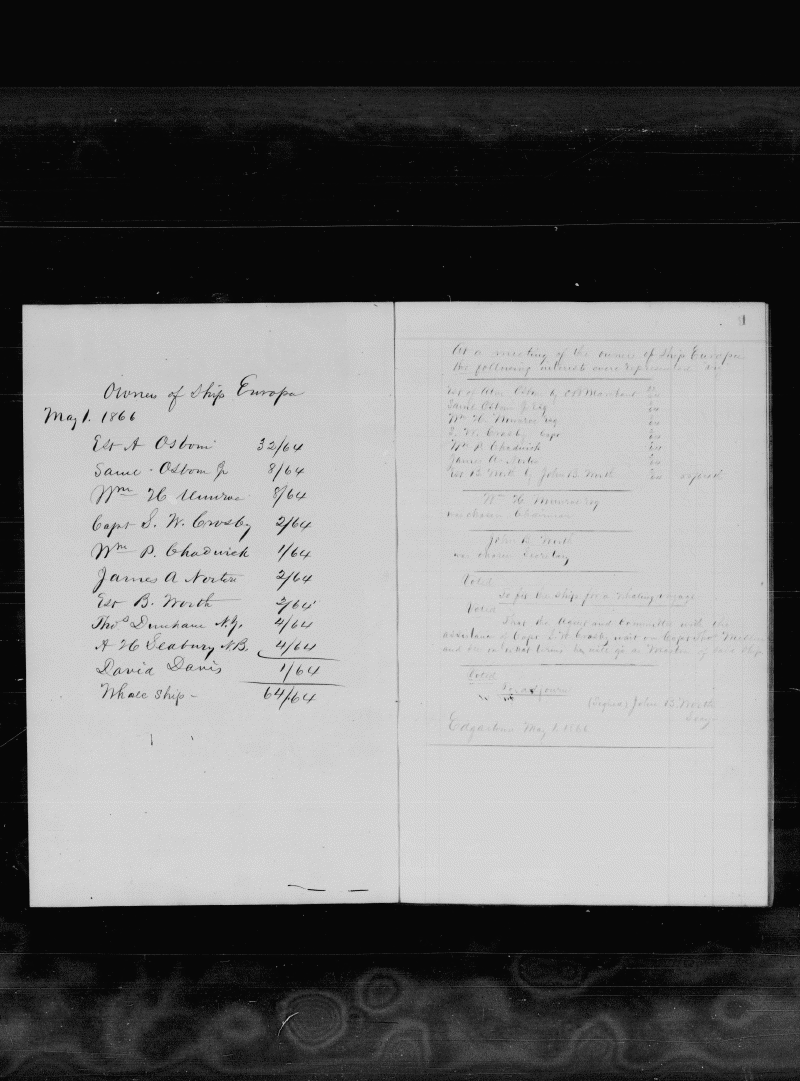 Owners of Ship Europa
May 1. 1866
Est A Osborn 32/64
Saml. Osborn Jr 8/64
Wm H Munroe 8/64
Capt S. W. Crosby 2/64
Wm P. Chadwick 1/64
James A Norton 2/64
Est B. Worth 2/64
Thos Dunham N.Y. 4/64
A H Seabury N.B. 4/64
David Davis 1/64
Whole Ship - 64/64
1
At a meeting of the owners of Ship Europa
the following interests were represented
Saml Osborn Jr Esq
Wm H. Munroe Esq
S. W. Crosby Capt
Wm P. Chadwick
James A Norton
Est B. Worth by John B. Worth
Wm H. Munroe Esq
was chosen Chairman
John B. Worth
was chosen Secretary
Voted
To fit the ship for a Whaling voyage
Voted
That the Agent and Committee with the
assistance of Capt S W Crosby wait on Capt Thos
and see on what terms he will go as Master of said Ship
Voted
To adjourn
(Signed) John B. Worth
Secy
Edgartown May 1. 1866